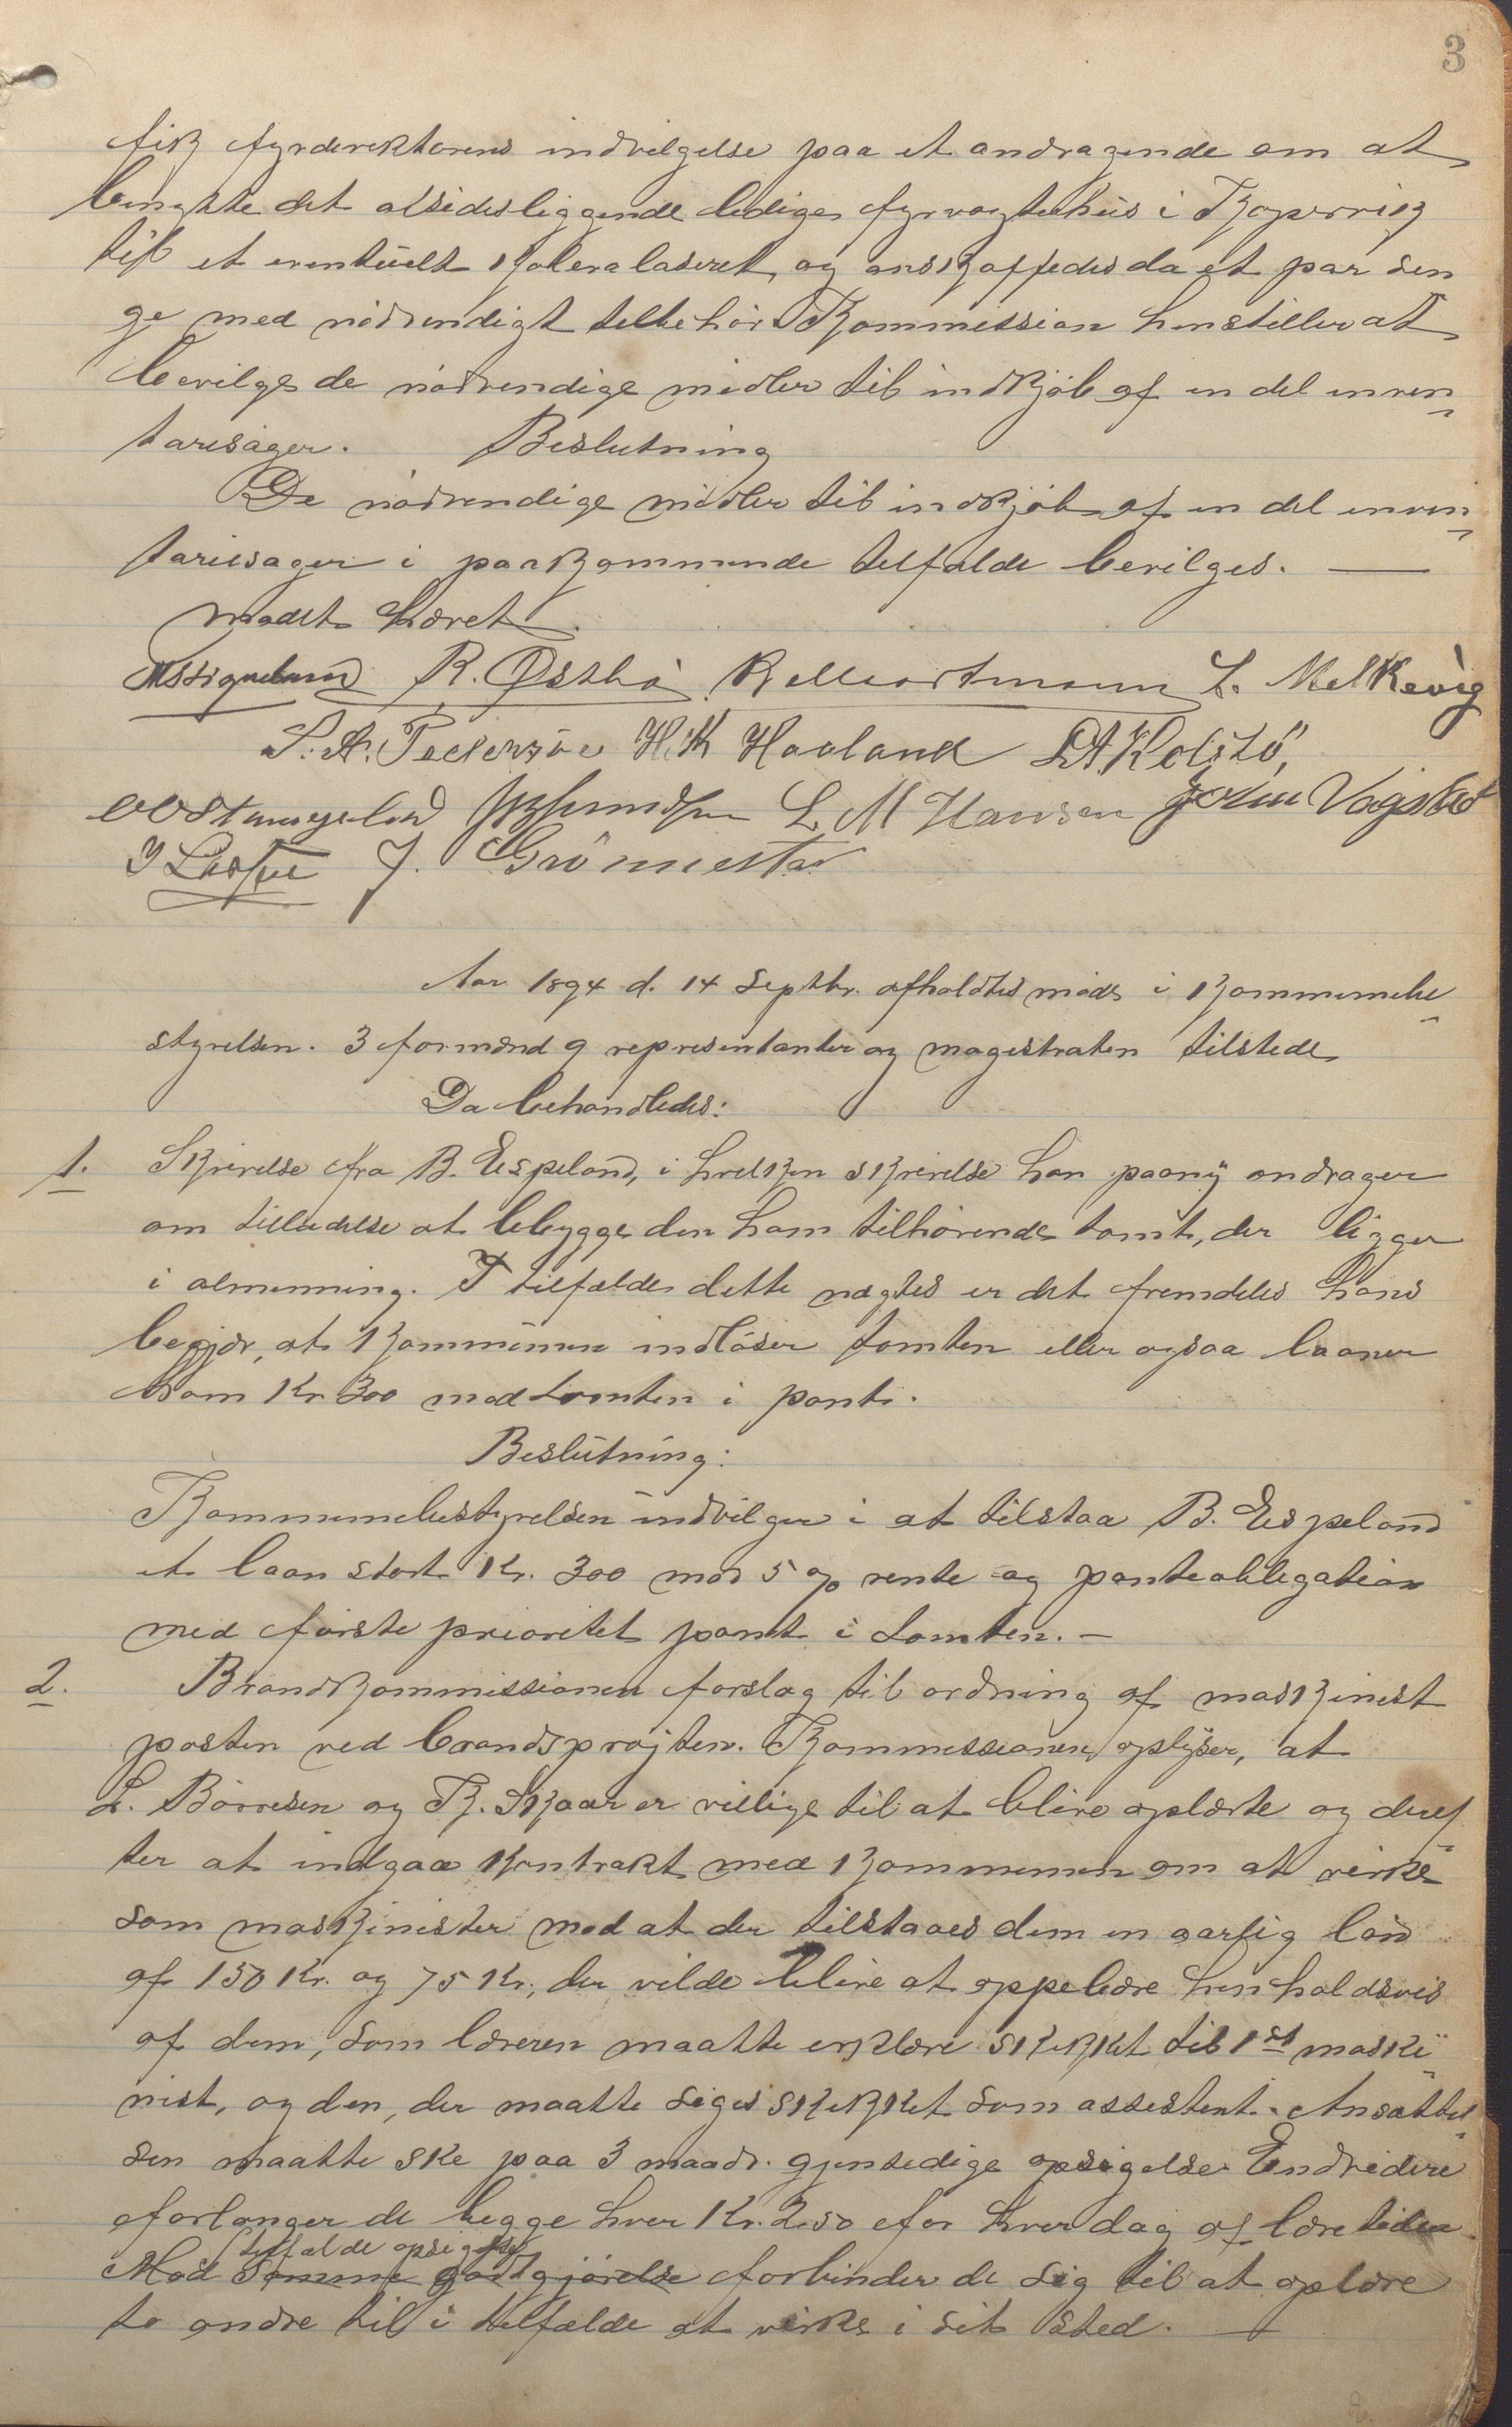 3
fik fyrdirektørens indvilgelse paa et andragende om at
benytte det afsidesliggende ledige fyrvogterhus i Kopervik
til et eventuelt koleralasaret, og anskaffedes da et par sen
ge med nödvendigt tilbehör. Kommission henstiller at
bevilge de nödvendige midler til indkjöb af en del inven-
tarisager. Beslutning
De nödvendige midler til indkjöb af en del inven-
tariesager i paakommende tilfælde bevilges. —
Mödet hævet.
R. Østhö L. Melkevig
S. A. Pedersen H. Haaland A. Kolstö,
L M Hansen John Vagstad
J. Grönnestad
Aar 1894 d. 14 Septbr. afholdtes möde i kommunebe-
styrelsen. 3 formænd 9 representanter og magistraten tilstede
Da behandledes:
1. Skrivelse fra B. Espeland, i hvilken skrivelse han paany andrager
om tilladelse at bebygge den ham tilhörende tomt, der ligger
i almenning. I tilfælde dette nægtes er det fremdeles hans
begjær, at kommunen indlöser tomten eller ogsaa laaner
ham Kr 300 mod tomten i pant.
Beslutning:
Kommunebestyrelsen indvilger i at tilstaa B. Espeland
et laan stort Kr. 300 mod 5 % rente og panteobligation
med förste prioritet pant i tomten. —
2. Brandkommissionen forslag til ordning af maskinist
posten ved brandspröjten. Kommissionen oplyser, at
L. Börresen og K. Skaar er villige til at blive oplærte og deref-
ter at indgaa kontrakt med kommunen om at virke
som maskinister mod at der tilstaaes dem en aarlig lön
af 150 Kr. og 75 Kr., der vilde blive at oppebære henholdsvis
af dem, som læreren maatte erklære skikket til 1st maski-
nist, og den, der maatte siges skikket som assistent. Ansættel-
sen maatte ske paa 3 maadr. gjensidige opsigelse. Endvidere
forlanger de begge hver Kr. 2.50 for hver dag af læretiden.
tilfælde opsigelse
Mod samme godtgjörelse forbinder de sig til at oplære
to andre til i tilfælde at virke i sit sted. —